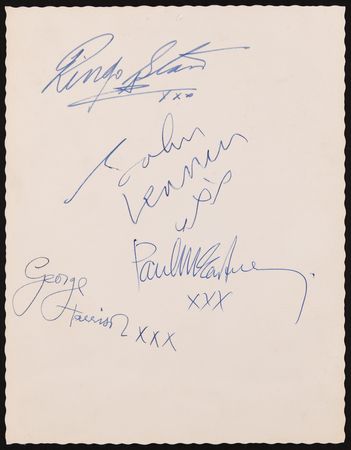 Ringo Starr
xxx
John
Lennon
xxx
Paul McCartney
XXX
George
Harrison xxx